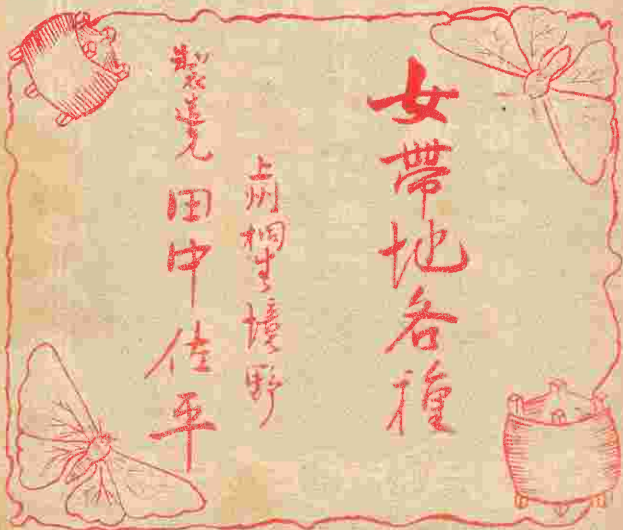 女帶地各種
上州桐生境野
製造元 田中佐平